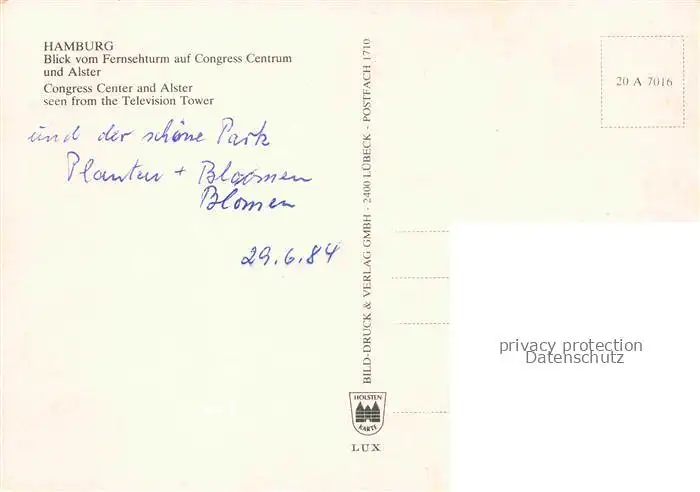 HAMBURG
Blick vom Fernsehturm auf Congress Centrum
und Alster
Congress Center and Alster
seen from the Television Tower
und der schöne Park
Planten + Bloomen
Blomen
29.6.84
BILD-DRUCK & VERLAG GMBH - 2400 LÜBECK - POSTFACH 1710
20 A 7016
privacy protection
Datenschutz
HOLSTEN
KARTE
LUX